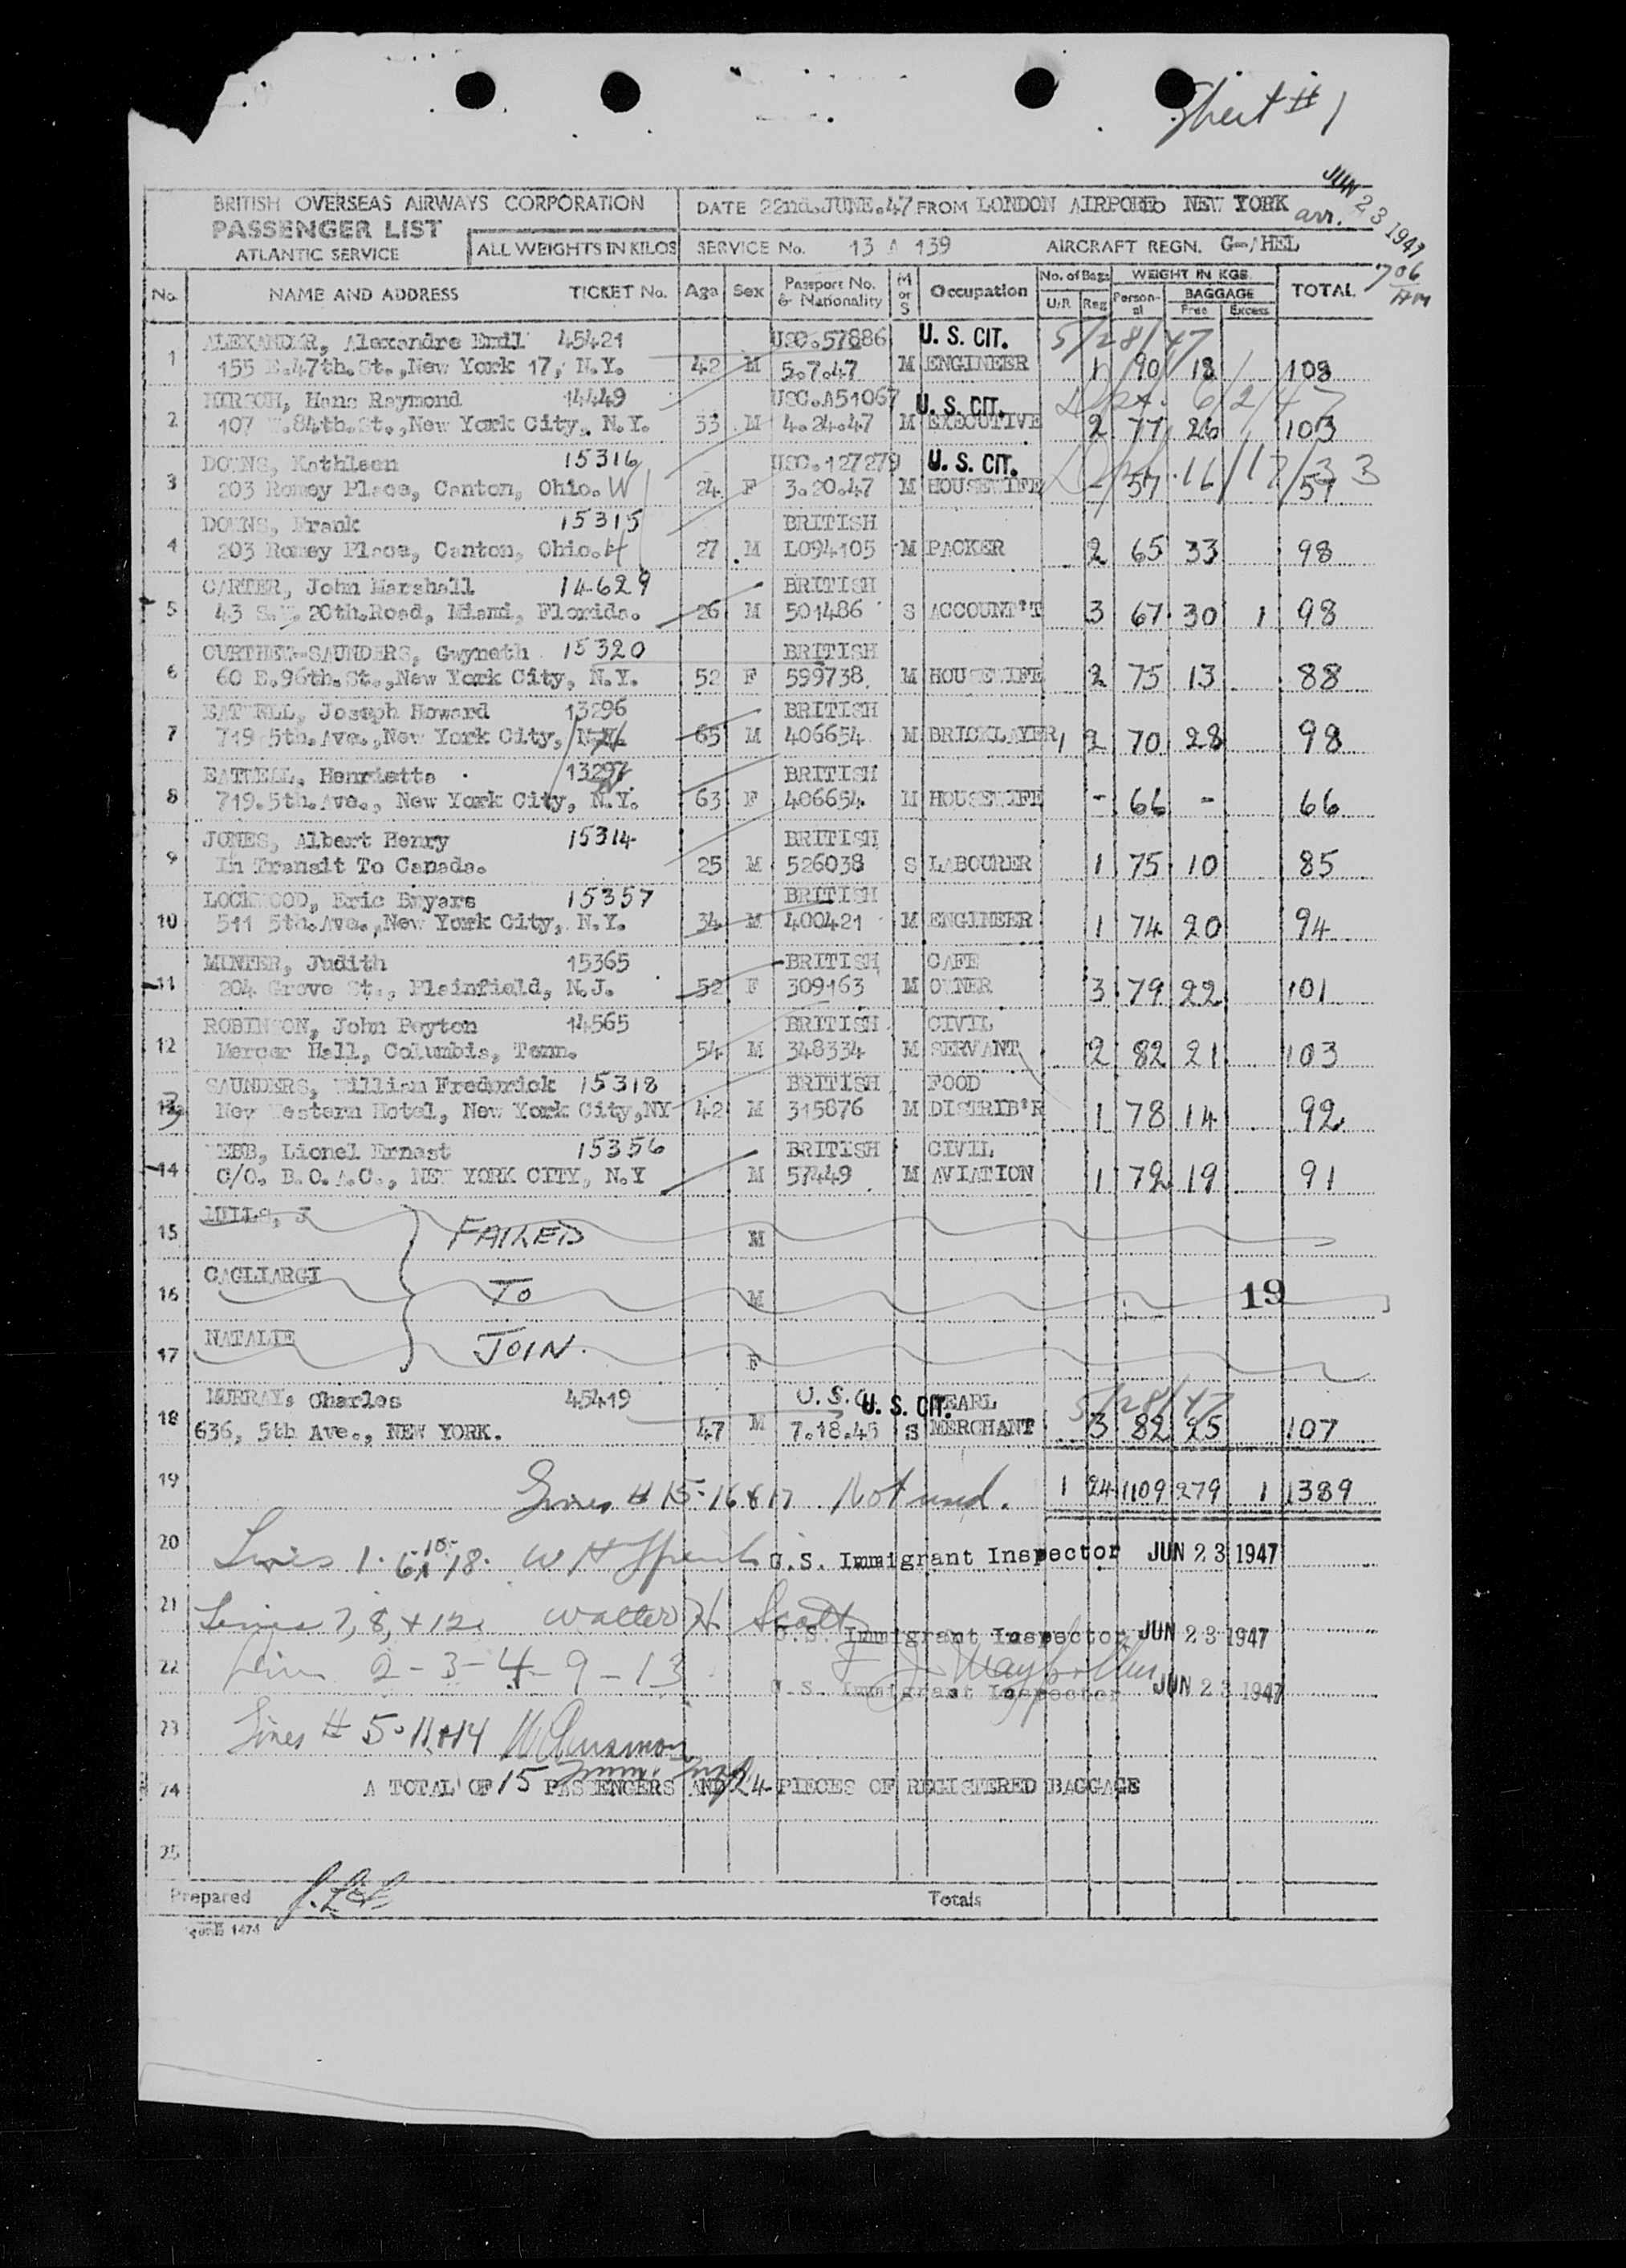 Sheet # 1
JUN 23 1947
arr. 706 AM
BRITISH OVERSEAS AIRWAYS CORPORATION
PASSENGER LIST
ATLANTIC SERVICE
ALL WEIGHTS IN KILOS
DATE 22nd.JUNE.47 FROM LONDON AIRPORT TO NEW YORK
SERVICE No. 13 A 139 AIRCRAFT REGN. G-AHEL
No. NAME AND ADDRESS TICKET No. Age Sex Passport No. & Nationality M or S Occupation No. of Bags U/R Reg WEIGHT IN KGS Personal BAGGAGE Free Excess TOTAL
ALEXANDER, Alexandre Emil 45421 USC.57886 U. S. CIT. 5/28/47
1 155 E.47th.St.,New York 17, N.Y. 42 M 5.7.47 M ENGINEER 1 90 18 108
HIRSCH, Hans Raymond 14449 USC.A51067 U. S. CIT. Dpt. 6/2/47
2 107 W.84th.St.,New York City, N.Y. 33 M 4.24.47 M EXECUTIVE 2 77 26 103
DOWNS, Kathleen 15316 USC.127279 U. S. CIT.
3 203 Romey Place, Canton, Ohio. W 24 F 3.20.47 M HOUSEWIFE - 57 57
DOWNS, Frank 15315 BRITISH
4 203 Romey Place, Canton, Ohio. H 27 M L094105 M PACKER 2 65 33 98
CARTER, John Marshall 14629 BRITISH
5 43 S.W. 20th.Road, Miami, Florida. 26 M 501486 S ACCOUNT'T 3 67 30 1 98
CURTHEW-SAUNDERS, Gwyneth 15320 BRITISH
6 60 E.96th.St.,New York City, N.Y. 52 F 599738 M HOUSEWIFE 2 75 13 88
EATWELL, Joseph Howard 13296 BRITISH
7 719 5th.Ave.,New York City, N.Y. 65 M 406654 M BRICKLAYER 1 2 70 28 98
EATWELL, Henrietta 13297 BRITISH
8 719.5th.Ave., New York City, N.Y. 63 F 406654 M HOUSEWIFE - 66 - 66
JONES, Albert Henry 15314 BRITISH
9 In Transit To Canada. 25 M 526038 S LABOURER 1 75 10 85
LOCKWOOD, Eric Bayars 15357 BRITISH
10 511 5th.Ave.,New York City, N.Y. 34 M 400421 M ENGINEER 1 74 20 94
MINTER, Judith 15365 BRITISH CAFE
11 204 Grove St., Plainfield, N.J. 52 F 309163 M OWNER 3 79 22 101
ROBINSON, John Peyton 14565 BRITISH CIVIL
12 Mercer Hall, Columbia, Tenn. 54 M 348334 M SERVANT 2 82 21 103
SAUNDERS, William Frederick 15318 BRITISH FOOD
13 New Western Hotel, New York City,NY 42 M 315876 M DISTRIB'R 1 78 14 92
WEBB, Lionel Ernest 15356 BRITISH CIVIL
14 C/O. B.O.A.C., NEW YORK CITY, N.Y M 57449 M AVIATION 1 72 19 91
15 MILLS, J FAILED M
16 CAGLIARGI TO M 19
17 NATALIE JOIN. F
MURRAY, Charles 45419 U.S.C. U. S. CIT. PEARL 5/28/47
18 636, 5th Ave., NEW YORK. 47 M 7.18.45 S MERCHANT 3 82 25 107
19 Lines # 15-16 & 17 Not used. 1 24 1109 279 1 1389
20 Lines 1-6-10-18. U.S. Immigrant Inspector JUN 23 1947
21 Lines 7, 8, + 12. Walter H. Scott
U.S. Immigrant Inspector JUN 23 1947
22 Line 2-3-4-9-13
U.S. Immigrant Inspector JUN 23 1947
23 Lines # 5-11+14
24 A TOTAL OF 15 PASSENGERS AND 24 PIECES OF REGISTERED BAGGAGE
25
Prepared Totals
1474